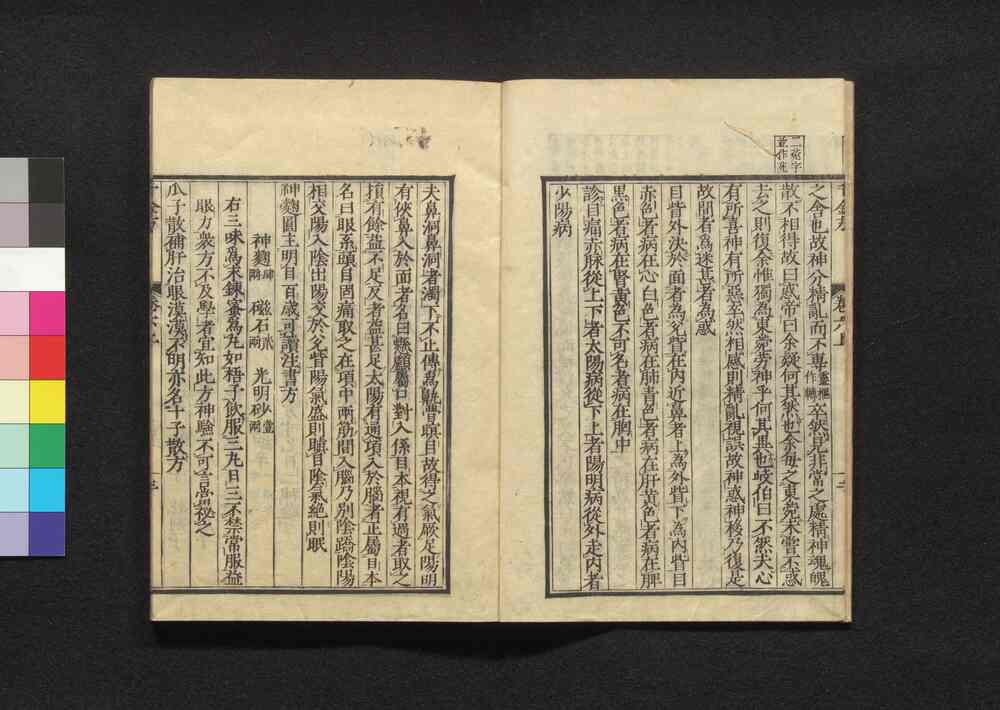 之舍也故神分精亂而不專靈樞作轉卒然見非常之處精神魂魄
散不相得故曰惑帝曰余疑何其然也余每之東苑未嘗不惑
去之則復余惟獨為東苑勞神乎何其異也岐伯曰不然夫心
有所喜神有所惡卒然相感則精亂視誤故神惑神移乃復是
故間者為迷甚者為惑
目眥外決於面者為兌眥在內近鼻者上為外眥下為內眥目
赤色者病在心白色者病在肺青色者病在肝黃色者病在脾
黑色者病在腎黃色不可名者病在胸中
診目痛赤脉從上下者太陽病從下上者陽明病從外走內者
少陽病
夫鼻洞鼻洞者濁下不止傳為鼽瞢瞑目故得之氣厥足陽明
有俠鼻入於面者名曰懸顱屬口對入係目本視有過者取之
損有餘益不足反者益甚足太陽有通項入於腦者正屬目本
名曰眼系頭目固痛取之在項中兩筋間入腦乃別陰蹻陰陽
相交陽入陰出陽交於兌眥陽氣盛則瞋目陰氣絕則眠
神麴圓主明目百歲可讀注書方
神麴肆兩 磁石貳兩 光明砂壹兩
右三味為末鍊蜜為丸如梧子飲服三丸日三不禁常服益
眼方衆方不及學者宜知此方神驗不可言當祕之
瓜子散補肝治眼漠漠不明亦名十子散方